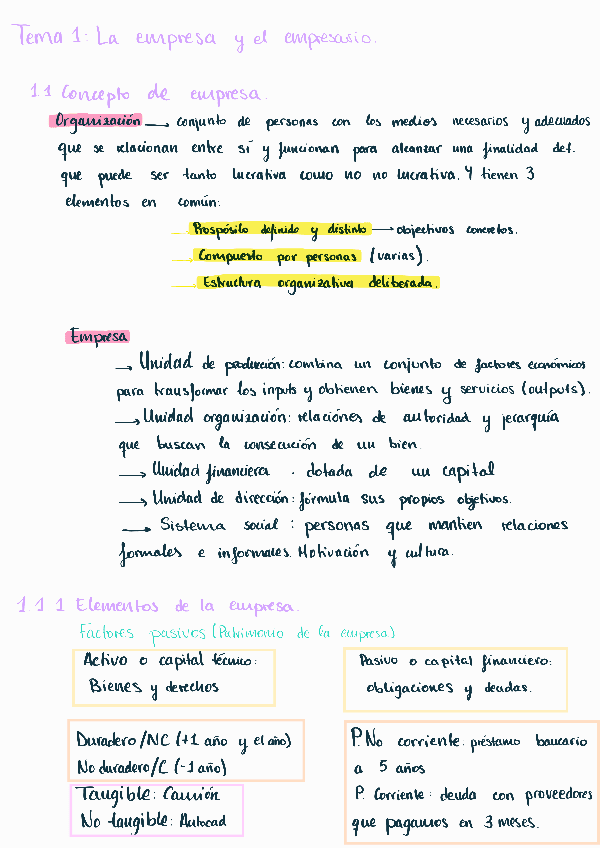 Tema 1: La empresa y el empresario.
1.1 Concepto de empresa.
Organización → conjunto de personas con los medios necesarios y adecuados
que se relacionan entre sí y funcionan para alcanzar una finalidad def.
que puede ser tanto lucrativa como no no lucrativa. Y tienen 3
elementos en común:
Prospósito definido y distinto → objectivos concretos.
→ Compuesto por personas (varias).
→ Estructura organizativa deliberada.
Empresa
→ Unidad de producción: combina un conjunto de factores económicos
para transformar los inputs y obtienen bienes y servicios (outputs).
→ Unidad organización: relaciónes de autoridad y jerarquía
que buscan la consecución de un bien.
→ Unidad financiera . dotada de un capital
→ Unidad de dirección: fórmula sus propios objetivos.
→ Sistema social : personas que mantien relaciones
formales e informales. Motivación y cultura.
1.1.1 Elementos de la empresa.
Factores pasivos (Patrimonio de la empresa)
Activo o capital técnico:
Bienes y derechos
Pasivo o capital financiero:
obligaciones y deudas.
Duradero/NC (+1 año y el año)
No duradero/C (-1 año)
Tangible: Camión
No tangible: Autocad
P. No corriente. préstamo bancario
a 5 años
P. Corriente: deuda con proveedores
que pagamos en 3 meses.